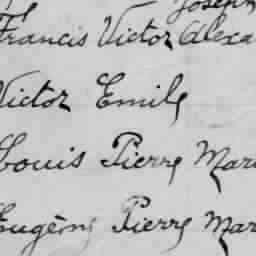 Joseph
Francis Victor Alexa
Victor Emile
Louis Pierre Mari
Eugène Pierre Mar